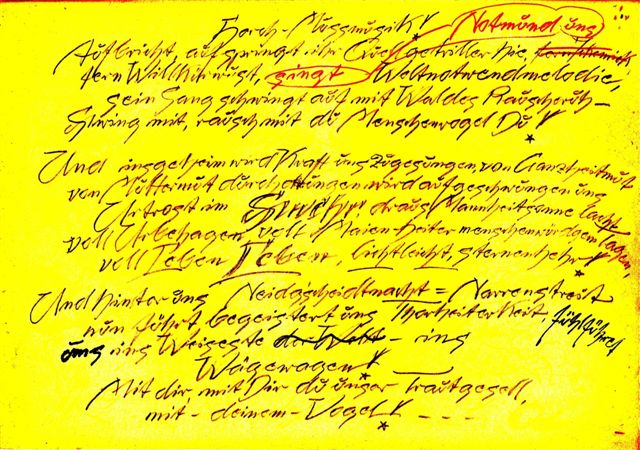 Horch - Mussmusik! Notmund uns
Aufbricht, aufspringt ihr Quellgetriller hie,
fern Willhitwust, singt Weltnotwendmelodie,
sein Sang schwingt auf mit Waldes Rauscheruh -
Schwing mit, rausch mit du Menschenvogel Du!
Und insgeheim wird Kraft uns zugesungen, von Ganzheitmut
von Muttermut durchdrungen wird aufgeschwungen uns
Urtrost im draus Mannheitsonne lacht
voll Urbehagen, voll Maienheiter menschenwürdgem tagen,
voll Leben Leben, lichtleicht, sternenhehr!
Und hinter uns Neidgscheidtmacht = Narrenstreit
nun führt, begeistert uns Thorheiterkeit,
uns ins Weiseste der Welt - ins
Wägewagen!
Mit dir, mit Dir du unser Trautgesell,
mit - deinem - Vogel!